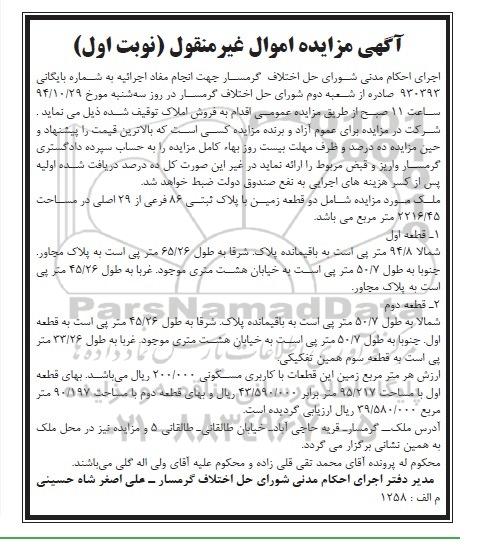 آگهی مزایده اموال غیرمنقول (نوبت اول)
اجرای احکام مدنی شورای حل اختلاف گرمسار جهت انجام مفاد اجرائیه به شماره بایگانی
۹۳۰۳۹۳ صادره از شعبه دوم شورای حل اختلاف گرمسار در روز سه‌شنبه مورخ ۹۴/۱۰/۲۹
ساعت ۱۱ صبح از طریق مزایده عمومی اقدام به فروش املاک توقیف شده ذیل می نماید .
شرکت در مزایده برای عموم آزاد و برنده مزایده کسی است که بالاترین قیمت را پیشنهاد و
حین مزایده ده درصد و ظرف مهلت بیست روز بهاء کامل مزایده را به حساب سپرده دادگستری
گرمسار واریز و قبض مربوط را ارائه نماید در غیر این صورت کل ده درصد دریافت شده اولیه
پس از کسر هزینه های اجرایی به نفع صندوق دولت ضبط خواهد شد.
ملک مورد مزایده شامل دو قطعه زمین با پلاک ثبتی ۸۶ فرعی از ۲۹ اصلی در مساحت
۲۲۱۶/۴۵ متر مربع می باشد.
۱ـ قطعه اول
شمالا ۹۴/۸ متر پی است به باقیمانده پلاک. شرقا به طول ۶۵/۲۶ متر پی است به پلاک مجاور.
جنوبا به طول ۵۰/۷ متر پی است به خیابان هشت متری موجود. غربا به طول ۴۵/۲۶ متر پی
است به پلاک مجاور.
۲ـ قطعه دوم
شمالا به طول ۵۰/۷ متر پی است به باقیمانده پلاک. شرقا به طول ۴۵/۲۶ متر پی است به قطعه
اول. جنوبا به طول ۵۰/۷ متر پی است به خیابان هشت متری موجود. غربا به طول ۳۳/۲۶ متر
پی است به قطعه سوم همین تفکیکی.
ارزش هر متر مربع زمین این قطعات با کاربری مسکونی ۲۰۰/۰۰۰ ریال می‌باشد. بهای قطعه
اول با مساحت ۹۵/۲۱۷ متر برابر ۴۳/۵۹۰/۰۰۰ ریال و بهای قطعه دوم با مساحت ۹۰/۱۹۷ متر
مربع ۳۹/۵۸۰/۰۰۰ ریال ارزیابی گردیده است.
آدرس ملک ـ گرمسار ـ قریه حاجی آباد ـ خیابان طالقانی ـ طالقانی ۵ و مزایده نیز در محل ملک
به همین نشانی برگزار می گردد.
محکوم له پرونده آقای محمد تقی قلی زاده و محکوم علیه آقای ولی اله گلی می‌باشند.
مدیر دفتر اجرای احکام مدنی شورای حل اختلاف گرمسار ـ علی اصغر شاه حسینی
م الف : ۱۲۵۸
ParsNamadData